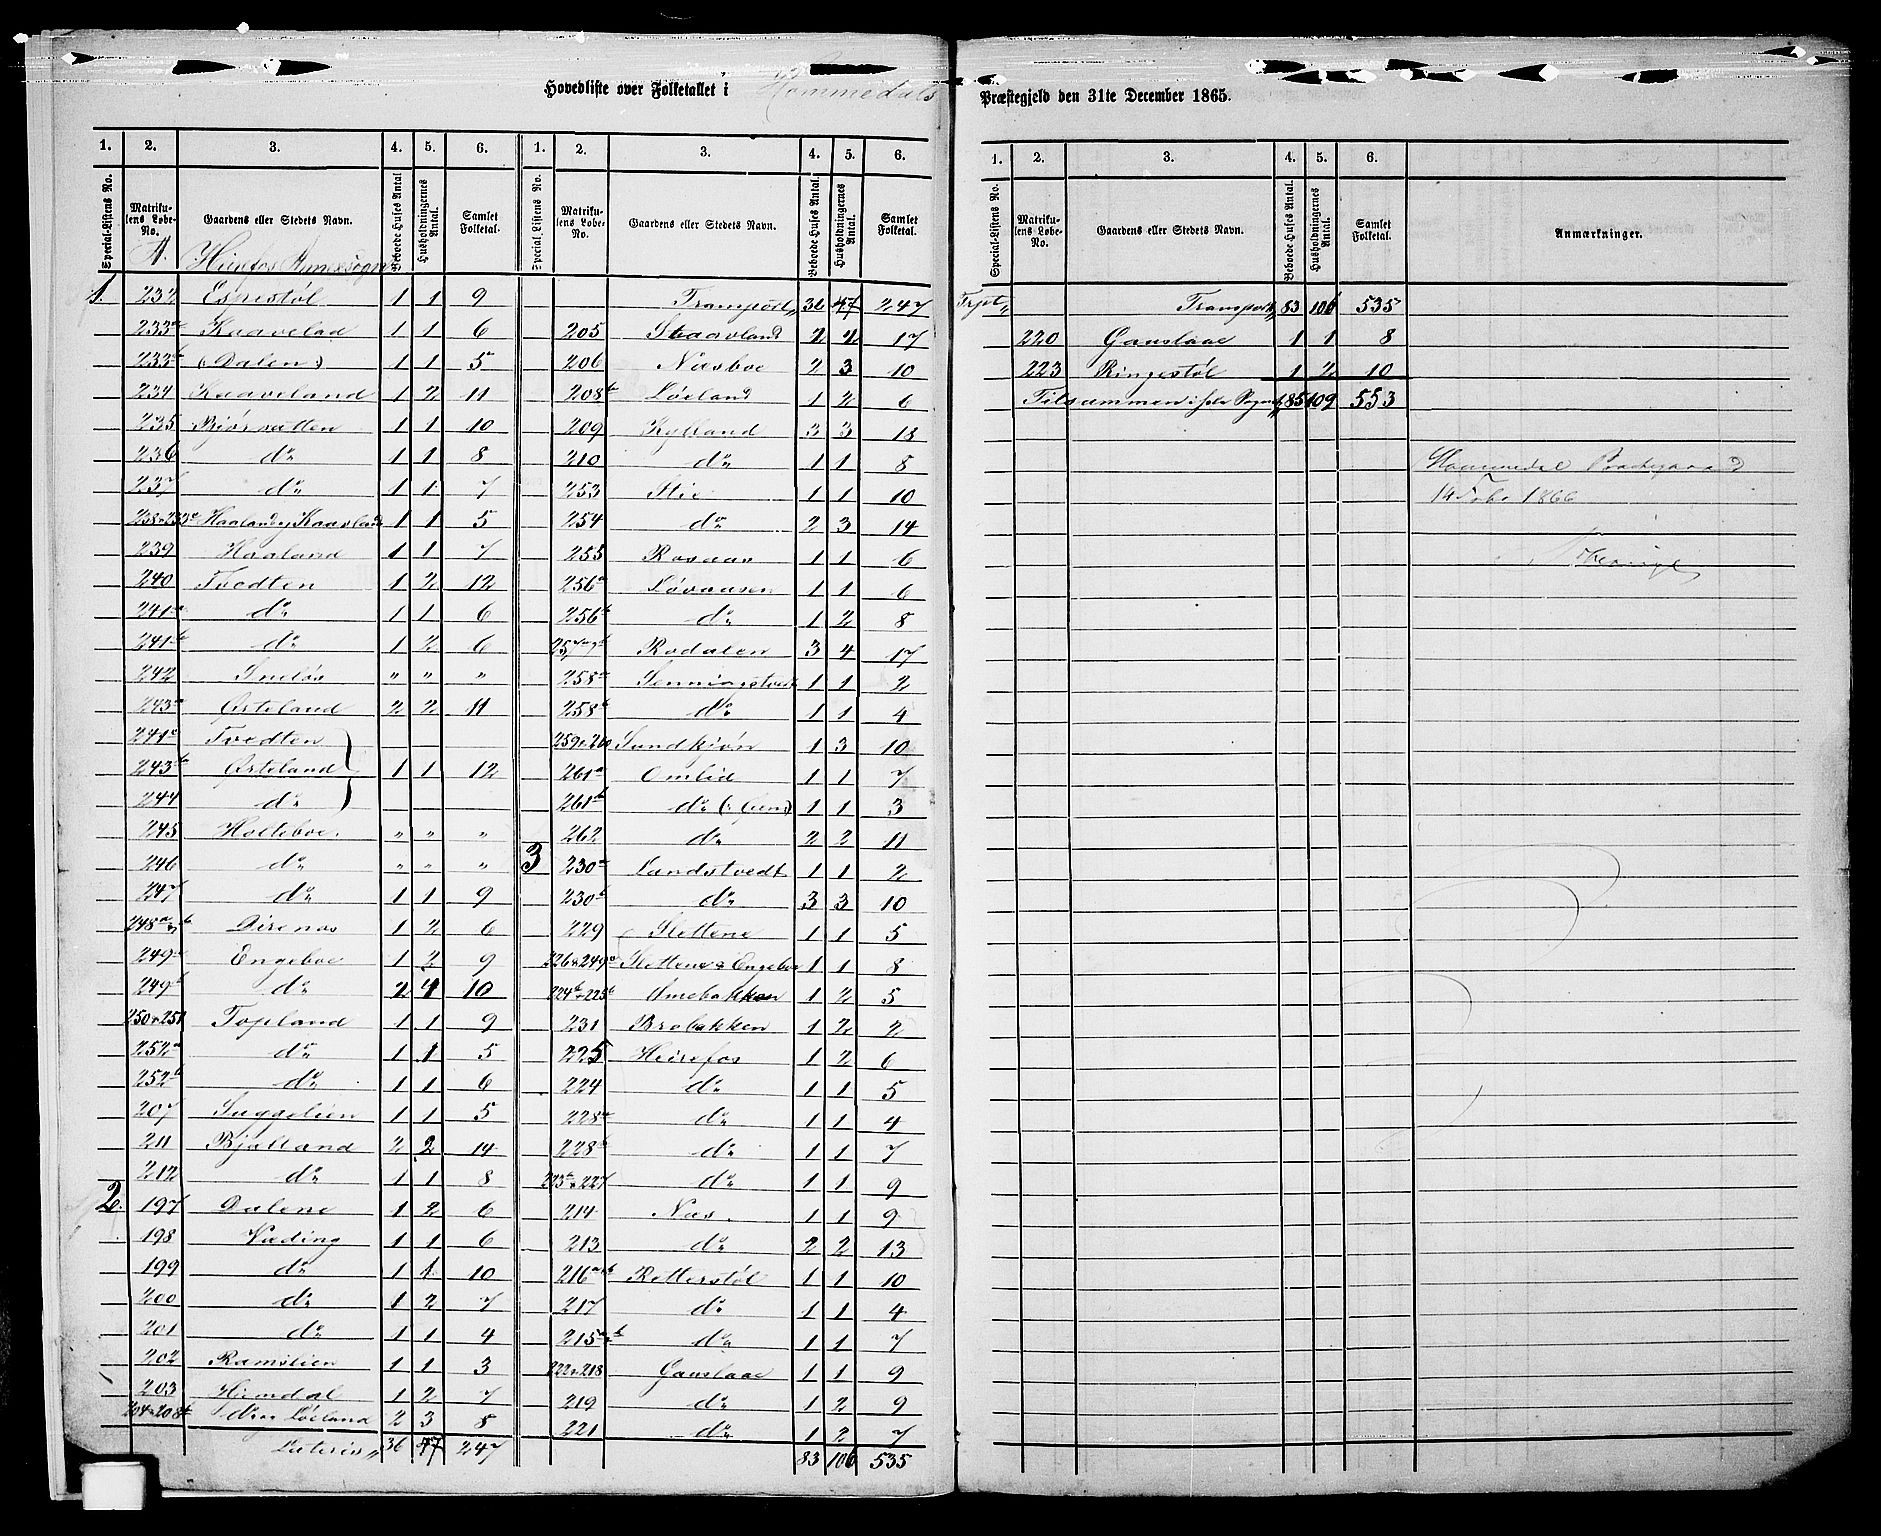 Hovedliste over Folketallet i Hommedals Præstegjeld den 31te December 1865.
1. 2. 3. 4. 5. 6. 1. 2. 3. 4. 5. 6.
Special-Listens No. Matrikulens Løbe-No. Gaardens eller Stedets Navn. Beboede Huses Antal Husholdningernes Antal. Samlet Folketal. Special-Listens No. Matrikulens Løbe-No. Gaardens eller Stedets Navn. Beboede Huses Antal. Husholdningernes Antal. Samlet Folketal.
A. Heirefos Annexsogn
1. 232 Espestøl 1 1 9
233a Kaavelad 1 1 6
233b (Dalen) 1 1 5
234 Kaaveland 1 2 11
235 Bjørvatten 1 1 10
236 do 1 1 8
237 do 1 1 7
238 & 233a Haaland og Kaaveland 1 1 5
239 Haaland 1 1 7
240 Tvedten 1 2 12
241a do 1 1 6
241b do 1 2 6
242 Sneløs " " "
243a Ørteland 2 2 11
241a Tvedten
243b Ørteland 1 1 12
244 do
245 Holteboe " " "
246 do " " "
247 do 1 1 9
248a og b Direnæs 1 2 6
249a Engeboe 1 2 9
249b do 2 4 10
250 & 251 Topland 1 1 9
252a do 1 1 5
252b do 1 1 6
207 Suggelien 1 1 5
211 Bjalland 2 2 14
212 do 1 1 8
2. 197 Dalene 1 2 6
198 Væding 1 1 6
199 do 1 1 10
200 do 1 2 7
201 do 1 1 4
202 Ramslien 1 1 3
203 Himdal 1 2 7
204 & 208b do og Løeland 2 3 8
Lateris 36 47 247
Transport 36 47 247
205 Staavland 2 2 17
206 Næsboe 2 3 10
208b Løeland 1 2 6
209 Kylland 3 3 18
210 do 1 1 8
253 Stie 1 1 10
254 do 2 3 14
255 Rosaas 1 1 6
256a Løvaasen 1 1 6
256b do 1 2 8
257a og b Rodalen 3 4 17
258a Senningstvedt 1 1 2
258b do 1 1 4
259 & 260 Sundkjøn 1 3 10
261a Omlid 1 1 7
261b do 1 1 3
262 do 2 2 11
3 230a Landstvedt 1 1 2
230b do 3 3 10
229 Slettene 1 1 5
226 & 249a Slettene & Engeboe 1 1 8
224b & 225b Amebakken 1 2 5
231 Brobakken 1 2 2
225 Heirefos 1 2 6
224 do 1 1 5
228a do 1 1 4
228b do 1 1 7
223b & 227 do 1 1 9
214 Næs 1 1 9
213 do 2 2 13
216a b Retterstøl 1 1 10
217 do 1 1 4
215a b do 1 1 7
222 & 218 Gauslaae 1 1 9
219 do 1 2 9
221 do 1 2 7
83 106 535
1. 2. 3. 4. 5. 6.
Special-Listens No. Matrikulens Løbe-No. Gaardens eller Stedets Navn. Beboede Huses Antal. Husholdningernes Antal. Samlet Folketal. Anmærkninger.
Trpt Transport 83 106 535
220 Gauslaae 1 1 8
223 Ringestøl 1 2 10
Tilsammen i hele Sognet 85 109 553
Hommedal Præstegaard
14 Febr 1866